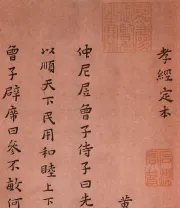 孝經定本
黄
仲尼凥曾子侍子曰先
以順天下民用和睦上下
曾子辟席曰參不敏何